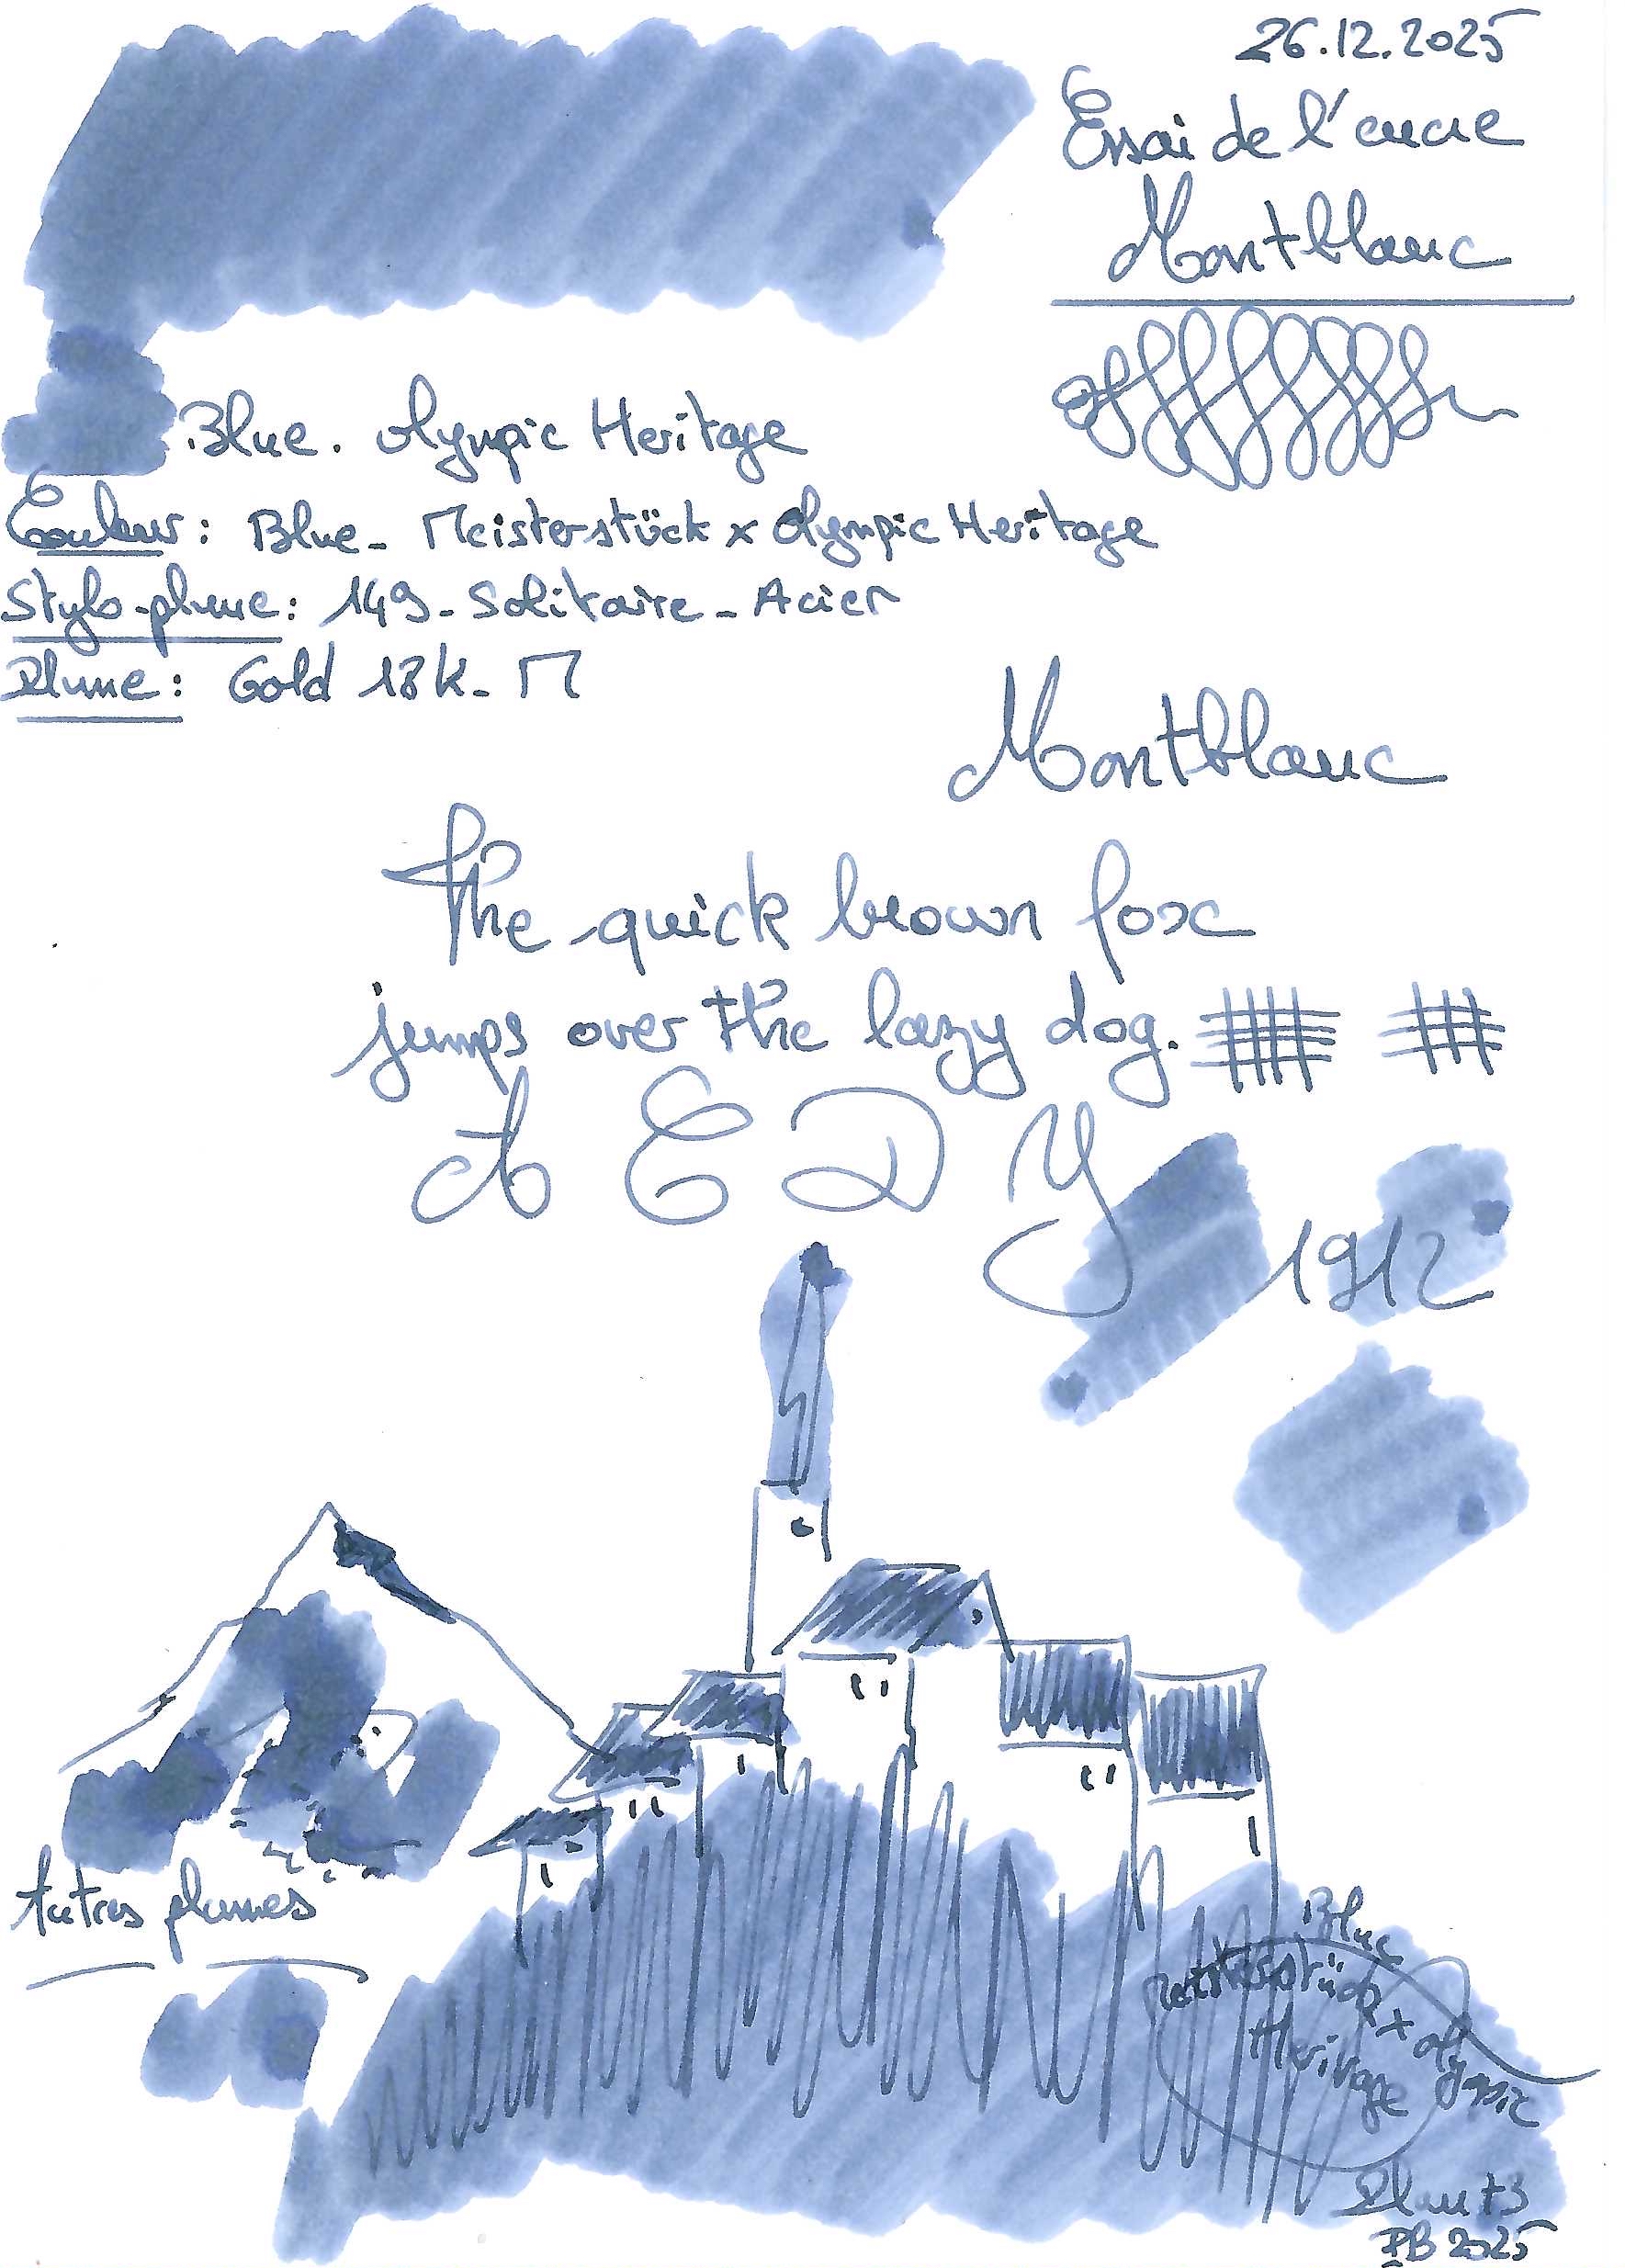 26.12.2025
Essai de l'encre
Montblanc
Blue. Olympic Heritage
Couleur : Blue - Meisterstück x Olympic Heritage
Stylo-plume : 149 - Solitaire - Acier
Plume : Gold 18k - M
Montblanc
The quick brown fox
jumps over the lazy dog.
A E D Y
1912
Autres plumes
Blue
Meisterstück x Olympic
Heritage
PB 2025